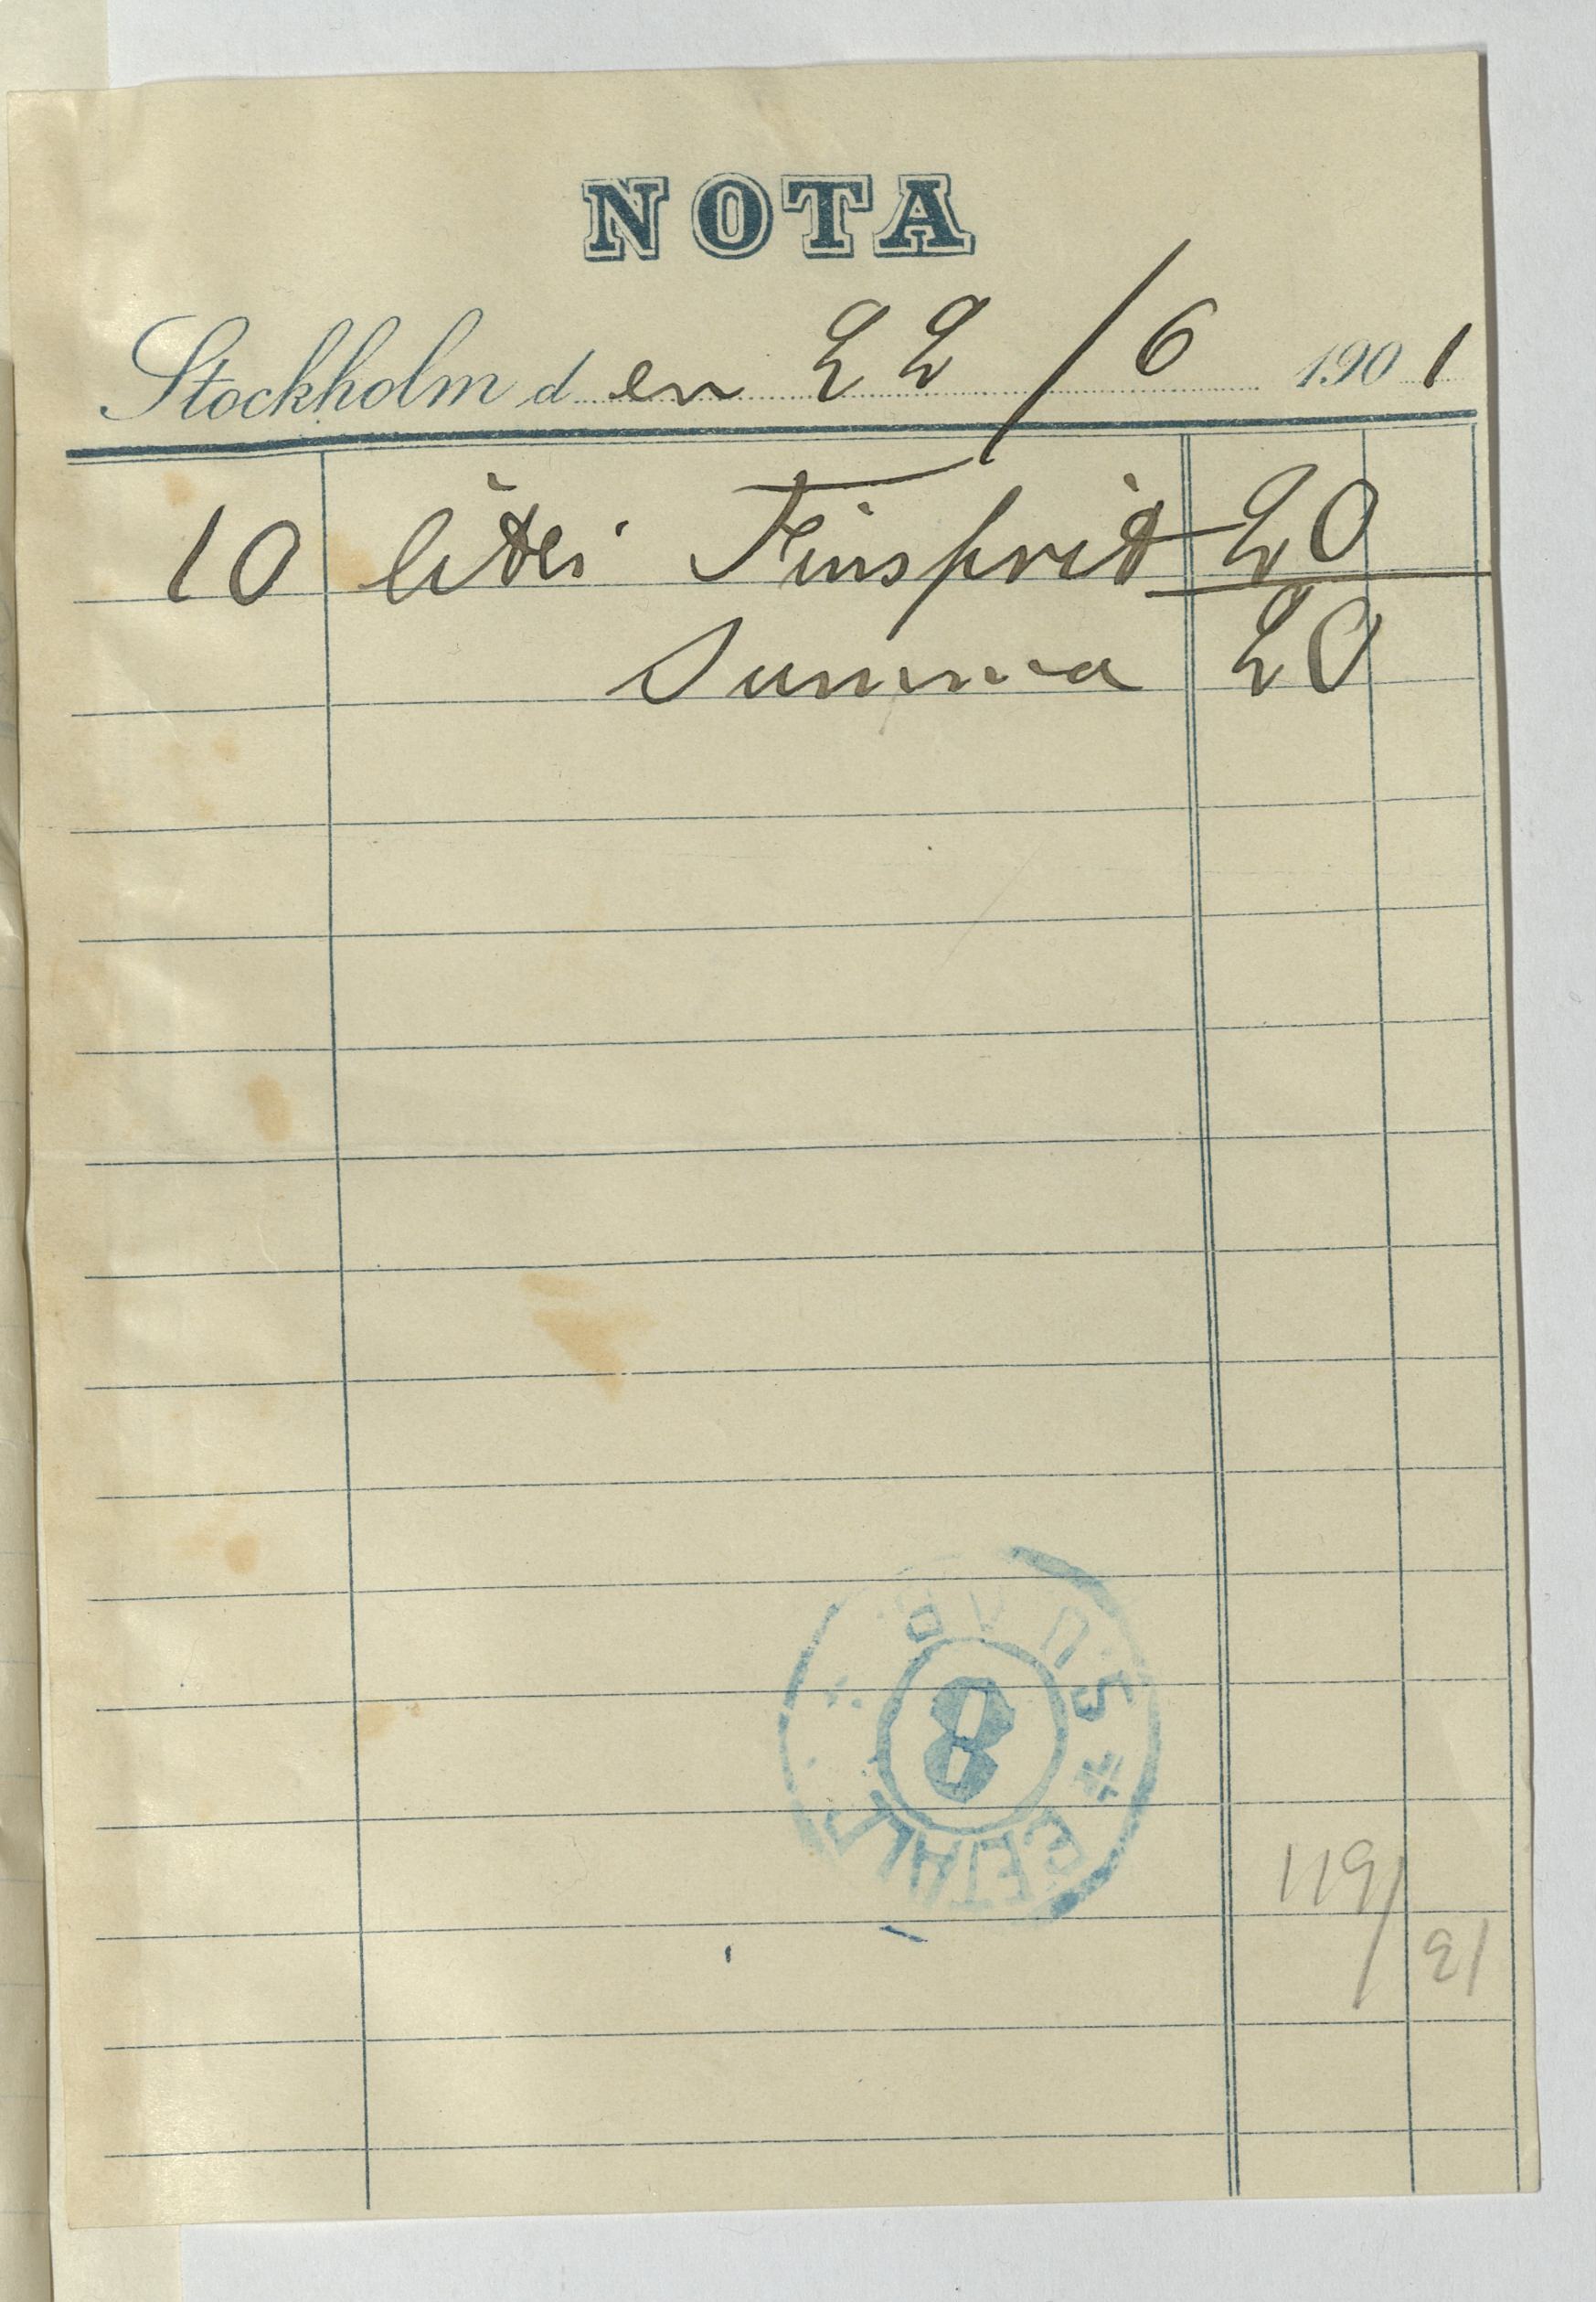 NOTA
Stockholm den 22/6 1901
10 liter Finsprit 20
Summa 20
8
119/